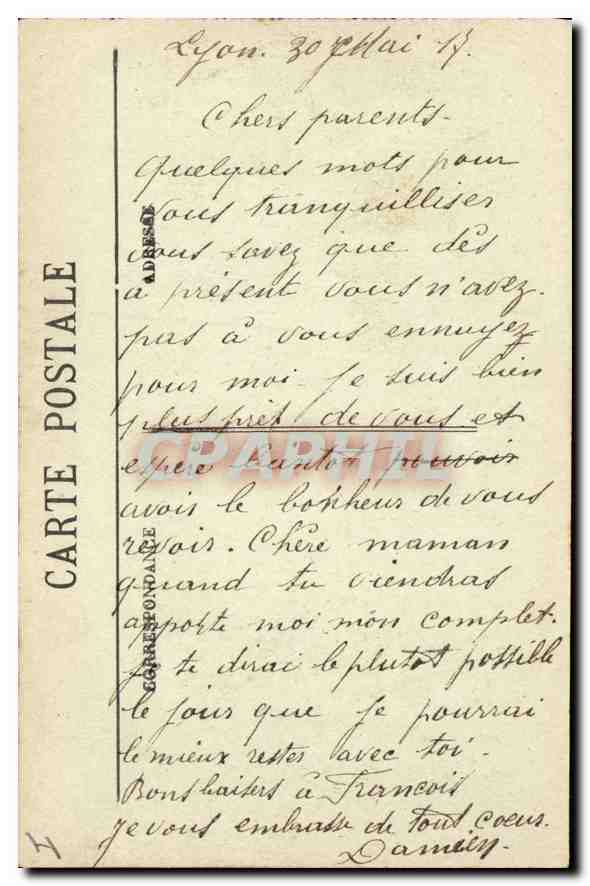 Lyon. 30 Mai 17.
Chers parents-
quelques mots pour
vous tranquilliser
vous savez que dès
a présent vous n'avez.
pas à vous ennuyez
pour moi. Je suis bien
plus prét de vous et
espère bientot pouvoir
avoir le bonheur de vous
revoir. Chère maman
quand tu viendras
apporte moi mon complet.
Je te dirai le plutot possible
le jour que je pourrai
le mieux rester avec toi.
Bons baisers à Francois
Je vous embrasse de tout coeur.
Damien.
CARTE POSTALE
ADRESSE
CORRESPONDANCE
CPARAMA